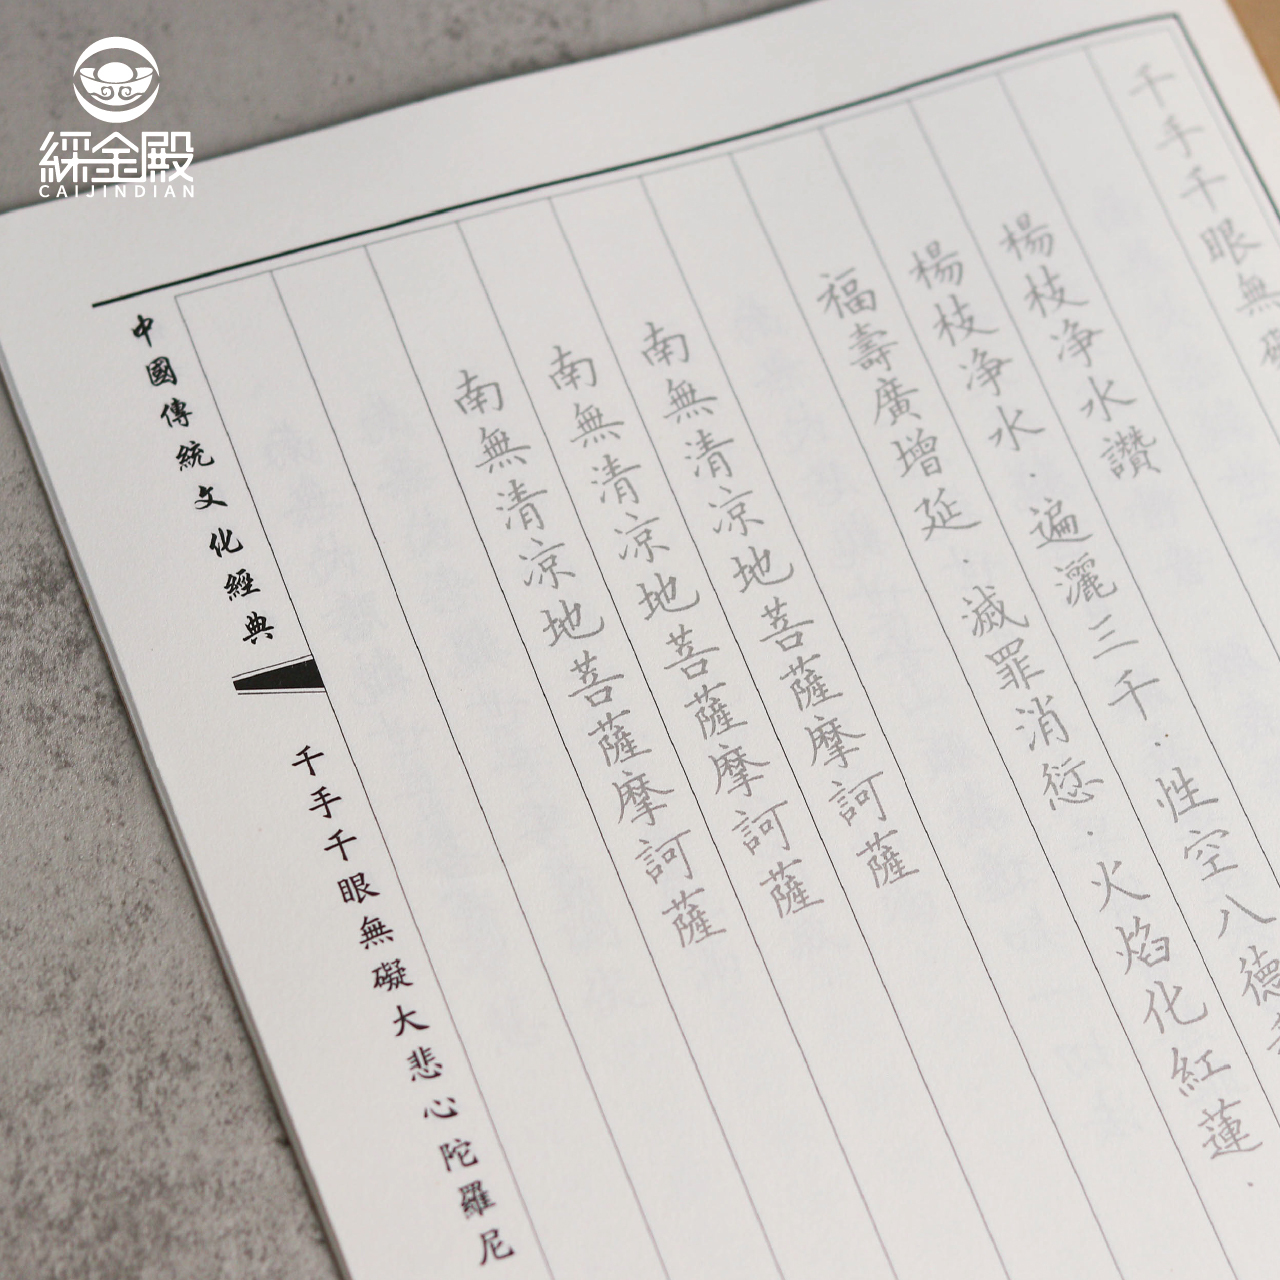 綵金殿
CAIJINDIAN
千手千眼無礙
楊枝净水讚
楊枝净水．遍灑三千．．性空八德
福壽廣增延．滅罪消愆．火焰化紅蓮．
南無清凉地菩薩摩訶薩
南無清凉地菩薩摩訶薩
南無清凉地菩薩摩訶薩
中國傳統文化經典
千手千眼無礙大悲心陀羅尼